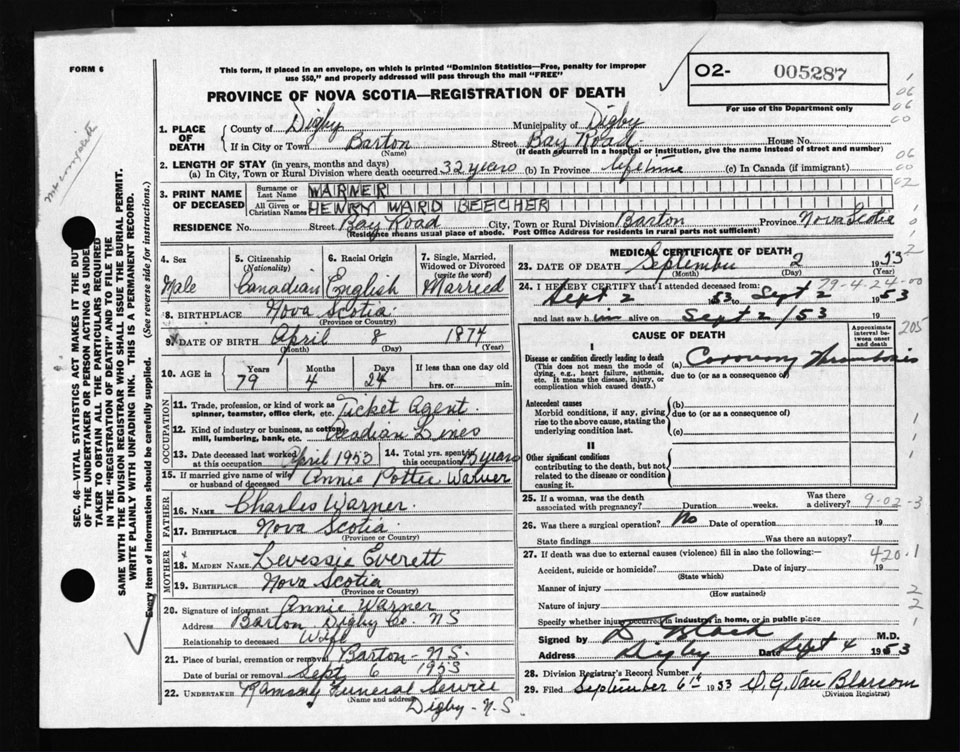 FORM 6
This form, if placed in an envelope, on which is printed "Dominion Statistics—Free, penalty for improper
use $50," and properly addressed will pass through the mail "FREE"
O2- 005287
PROVINCE OF NOVA SCOTIA—REGISTRATION OF DEATH
For use of the Department only
1. PLACE OF DEATH
County of Digby Municipality of Digby
If in City or Town Barton Street Bay Road House No.
(Name) (If death occurred in a hospital or institution, give the name instead of street and number)
2. LENGTH OF STAY (in years, months and days)
(a) In City, Town or Rural Division where death occurred 32 years (b) In Province lifetime (c) In Canada (if immigrant)
3. PRINT NAME OF DECEASED
Surname or Last Name WARNER
All Given or Christian Names HENRY WARD BEECHER
RESIDENCE No. Street Bay Road City, Town or Rural Division Barton Province Nova Scotia
(Residence means usual place of abode. Post Office Address for residents in rural parts not sufficient)
4. Sex
Male
5. Citizenship
(Nationality)
Canadian
6. Racial Origin
English
7. Single, Married,
Widowed or Divorced
(write the word)
Married
8. BIRTHPLACE Nova Scotia
(Province or Country)
9. DATE OF BIRTH April 8 1874
(Month) (Day) (Year)
10. AGE in Years Months Days If less than one day old
79 4 24 hrs. or min.
OCCUPATION
11. Trade, profession, or kind of work as
spinner, teamster, office clerk, etc. Ticket Agent
12. Kind of industry or business, as cotton
mill, lumbering, bank, etc. Acadian Lines
13. Date deceased last worked
at this occupation April 1953
14. Total yrs. spent in
this occupation 15 years
15. If married give name of wife
or husband of deceased Annie Potter Warner
FATHER
16. Name Charles Warner
17. Birthplace Nova Scotia
(Province or Country)
MOTHER
18. Maiden Name Everett
19. Birthplace Nova Scotia
(Province or Country)
20. Signature of informant Annie Warner
Address Barton Digby Co. NS
Relationship to deceased Wife
21. Place of burial, cremation or removal Barton - N.S.
Date of burial or removal Sept 6 1953
22. Undertaker Ramsay Funeral Service
(Name and address)
Digby - N.S.
MEDICAL CERTIFICATE OF DEATH
23. DATE OF DEATH September 2 1953
(Month) (Day) (Year)
24. I HEREBY CERTIFY that I attended deceased from: 79-4-24-00
Sept 2 1953 to Sept 2 1953
and last saw him alive on Sept 2/53 19
CAUSE OF DEATH
Approximate
interval between
onset and
death
205
I
Disease or condition directly leading to death
(This does not mean the mode of
dying, e.g., heart failure, asthenia,
etc. It means the disease, injury, or
complication which caused death.)
(a) Coronary Thrombosis
due to (or as a consequence of)
Antecedent causes
Morbid conditions, if any, giving
rise to the above cause, stating the
underlying condition last.
(b)
due to (or as a consequence of)
(c)
II
Other significant conditions
contributing to the death, but not
related to the disease or condition
causing it.
25. If a woman, was the death
associated with pregnancy? Duration weeks. Was there
a delivery? 9-02-3
26. Was there surgical operation? No Date of operation 19
State findings Was there an autopsy?
27. If death was due to external causes (violence) fill in also the following:— 420.1
Accident, suicide or homicide? Date of injury 19
(State which)
Manner of injury
(How sustained)
Nature of injury
Specify whether injury occurred in industry, in home, or in public place
Signed by M.D.
Address Digby Date Sept 4 1953
28. Division Registrar's Record Number
29. Filed September 6th 1953 D. G. Van Blarcom
(Division Registrar)
SEC. 46—VITAL STATISTICS ACT MAKES IT THE DUTY
OF THE UNDERTAKER OR PERSON ACTING AS UNDER-
TAKER TO OBTAIN ALL THE PARTICULARS REQUIRED
IN THE "REGISTRATION OF DEATH" AND TO FILE THE
SAME WITH THE DIVISION REGISTRAR WHO SHALL ISSUE THE BURIAL PERMIT.
WRITE PLAINLY WITH UNFADING INK. THIS IS A PERMANENT RECORD.
Every item of information should be carefully supplied. (See reverse side for instructions.)